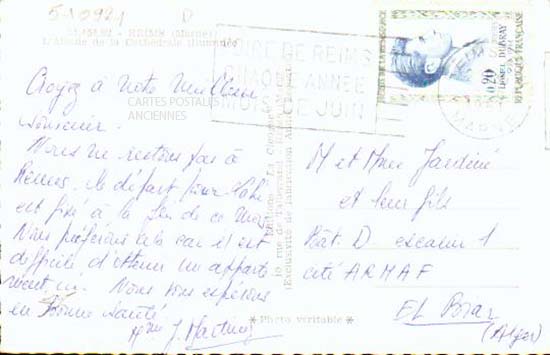 5-10921 D
REIMS (Marne)
L'Abside de la Cathédrale illuminée
FOIRE DE REIMS
CHAQUE ANNÉE
MOIS DE JUIN
HEROS DE LA RESISTANCE
0,20
LIONEL DUBRAY
REPUBLIQUE FRANÇAISE
MARNE
CARTES POSTALES
ANCIENNES
Croyez à notre meilleur
souvenir.
Nous ne restons pas à
Reims, le départ pour
est fixé à la fin de ce mois
Nous préférons cela car il est
difficile d'obtenir un apparte
ment ici. Nous vous espérons
en Bonne santé.
Mme J. Martinez
M et Mme Jardiné
et leur fils
Bât. D escalier 1
cité ARMAF
EL Biar
(Alger)
* Photo véritable *